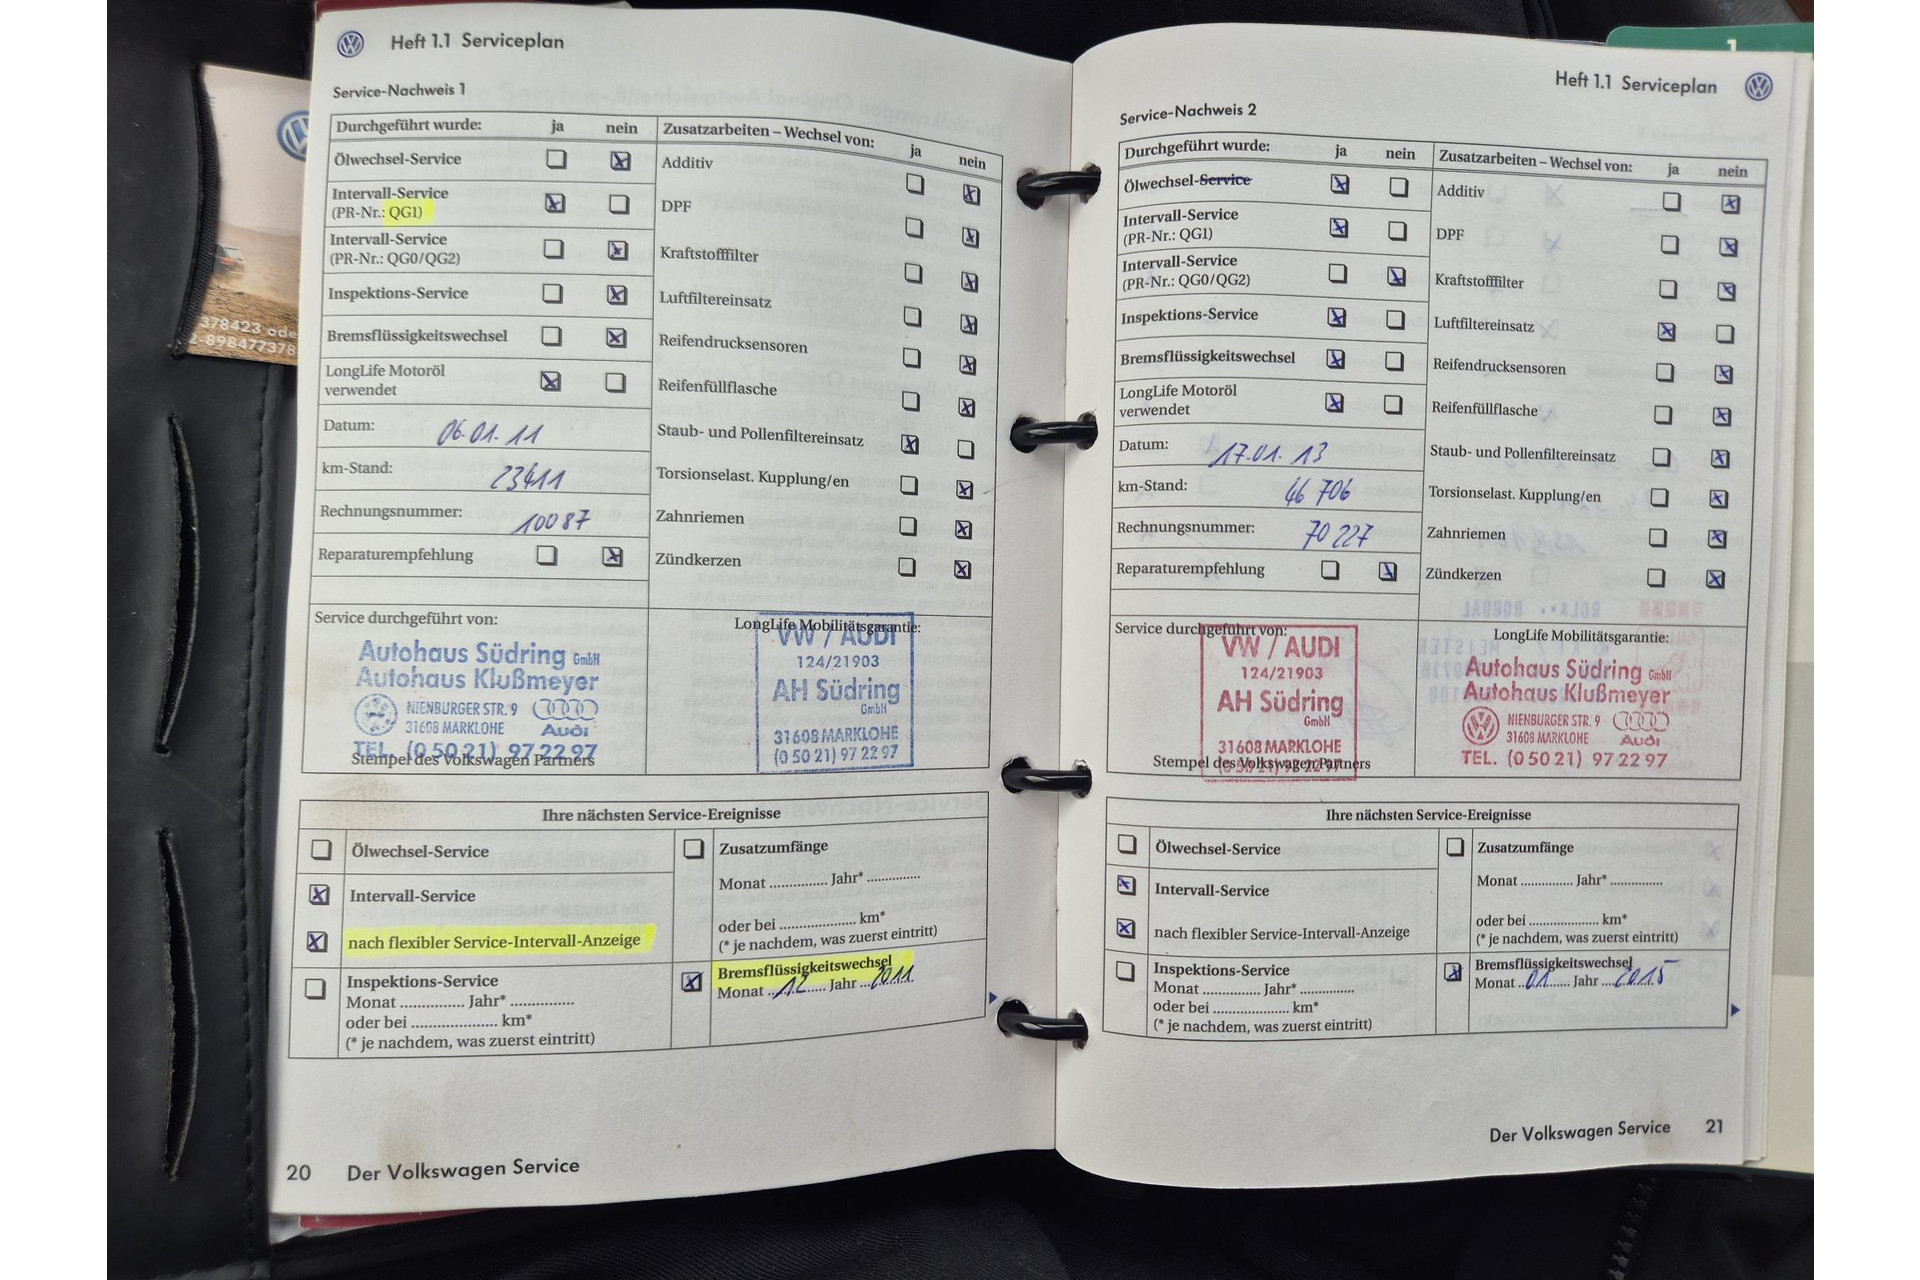 Heft 1.1 Serviceplan
Service-Nachweis 1
Durchgeführt wurde: ja nein
Ölwechsel-Service
Intervall-Service
(PR-Nr.: QG1)
Intervall-Service
(PR-Nr.: QG0/QG2)
Inspektions-Service
Bremsflüssigkeitswechsel
LongLife Motoröl
verwendet
Datum: 06.01.11
km-Stand: 23411
Rechnungsnummer: 10087
Reparaturempfehlung
Zusatzarbeiten – Wechsel von: ja nein
Additiv
DPF
Kraftstofffilter
Luftfiltereinsatz
Reifendrucksensoren
Reifenfüllflasche
Staub- und Pollenfiltereinsatz
Torsionselast. Kupplung/en
Zahnriemen
Zündkerzen
Service durchgeführt von:
Autohaus Südring GmbH
Autohaus Klußmeyer
NIENBURGER STR. 9
31608 MARKLOHE Audi
TEL. (0 50 21) 97 22 97
Stempel des Volkswagen Partners
LongLife Mobilitätsgarantie:
VW / AUDI
124/21903
AH Südring
GmbH
31608 MARKLOHE
(0 50 21) 97 22 97
Ihre nächsten Service-Ereignisse
Ölwechsel-Service
Intervall-Service
nach flexibler Service-Intervall-Anzeige
Inspektions-Service
Monat .............. Jahr* ..............
oder bei .................... km*
(* je nachdem, was zuerst eintritt)
Zusatzumfänge
Monat ............. Jahr* .............
oder bei .................. km*
(* je nachdem, was zuerst eintritt)
Bremsflüssigkeitswechsel
Monat ..12...... Jahr ...2011..
20 Der Volkswagen Service
Heft 1.1 Serviceplan
Service-Nachweis 2
Durchgeführt wurde: ja nein
Ölwechsel-Service
Intervall-Service
(PR-Nr.: QG1)
Intervall-Service
(PR-Nr.: QG0/QG2)
Inspektions-Service
Bremsflüssigkeitswechsel
LongLife Motoröl
verwendet
Datum: 17.01.13
km-Stand: 46 706
Rechnungsnummer: 70 227
Reparaturempfehlung
Zusatzarbeiten – Wechsel von: ja nein
Additiv
DPF
Kraftstofffilter
Luftfiltereinsatz
Reifendrucksensoren
Reifenfüllflasche
Staub- und Pollenfiltereinsatz
Torsionselast. Kupplung/en
Zahnriemen
Zündkerzen
Service durchgeführt von:
VW / AUDI
124/21903
AH Südring
GmbH
31608 MARKLOHE
(0 50 21) 97 22 97
Stempel des Volkswagen Partners
LongLife Mobilitätsgarantie:
Autohaus Südring GmbH
Autohaus Klußmeyer
NIENBURGER STR. 9
31608 MARKLOHE Audi
TEL. (0 50 21) 97 22 97
Ihre nächsten Service-Ereignisse
Ölwechsel-Service
Intervall-Service
nach flexibler Service-Intervall-Anzeige
Inspektions-Service
Monat .............. Jahr* .............
oder bei .................... km*
(* je nachdem, was zuerst eintritt)
Zusatzumfänge
Monat ............. Jahr* .............
oder bei .................. km*
(* je nachdem, was zuerst eintritt)
Bremsflüssigkeitswechsel
Monat ..01...... Jahr ....2015
Der Volkswagen Service 21
378423 ode
2-898477378
1